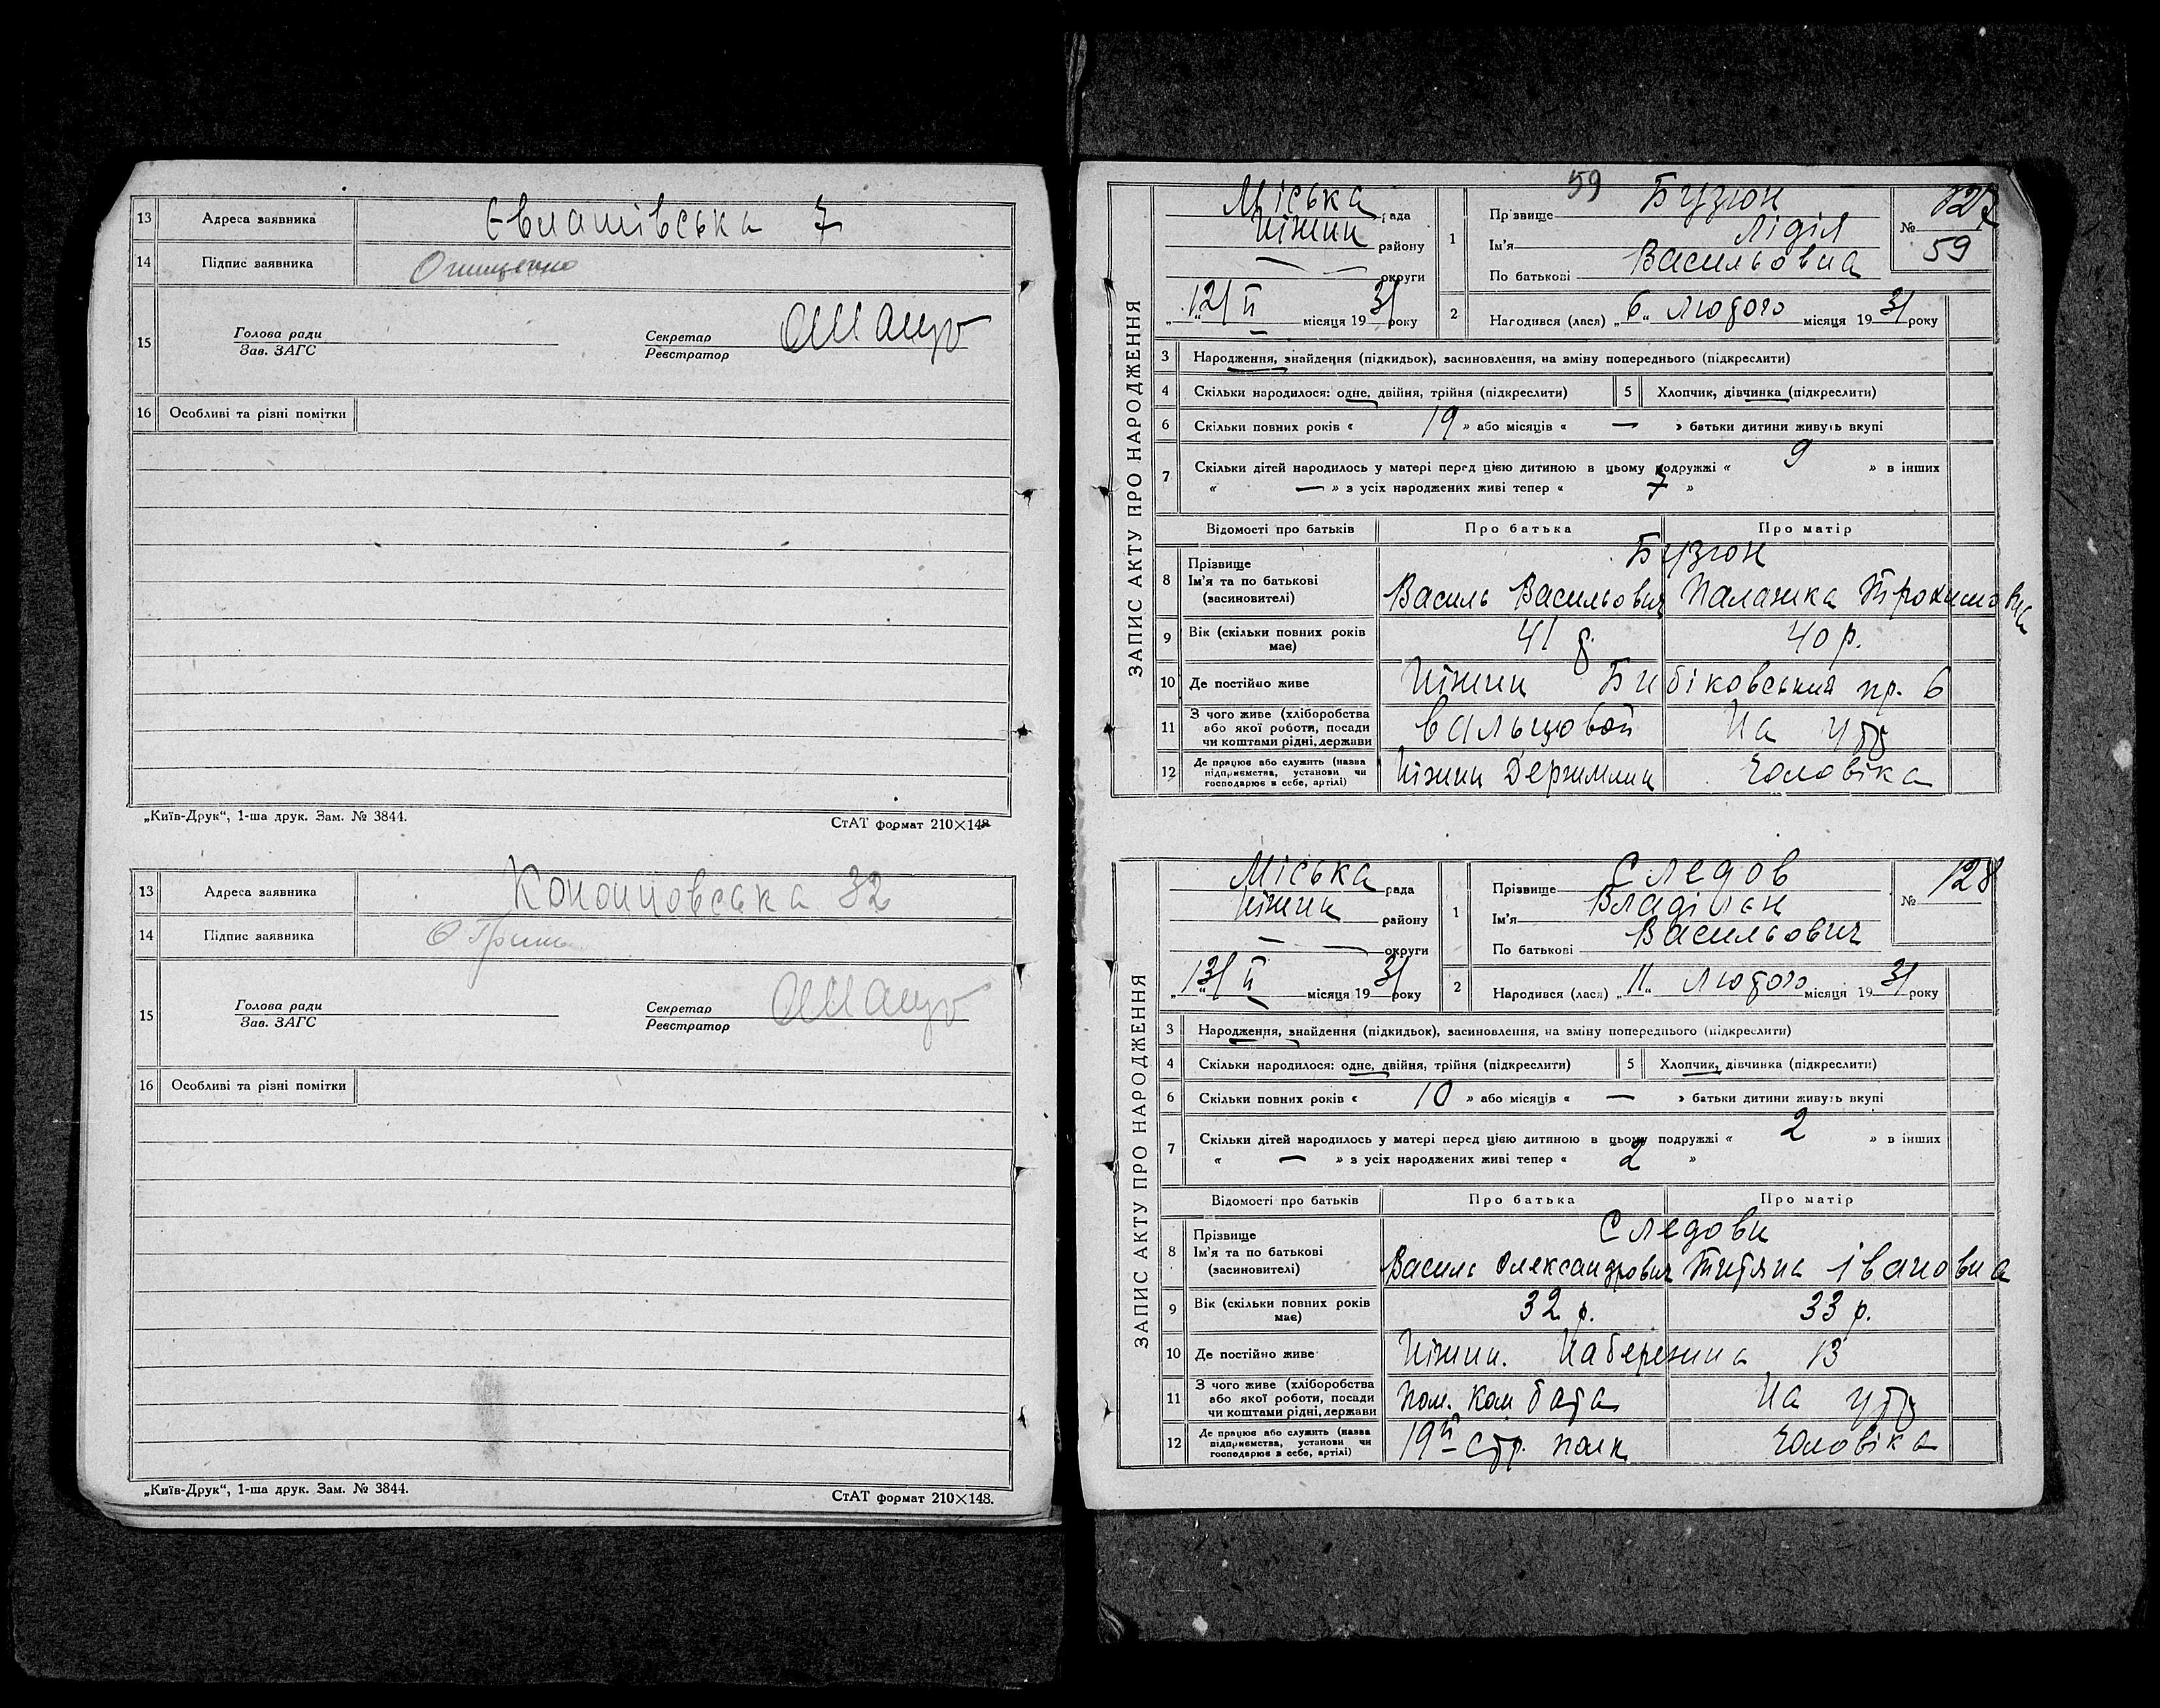 13 Адреса заявника Євлашівська 7
14 Підпис заявника Онищенко
15 Голова ради Секретар
Зав. ЗАГС Реєстратор
16 Особливі та різні помітки
„Київ-Друк“, 1-ша друк. Зам. № 3844. СтАТ формат 210×148
13 Адреса заявника 32
14 Підпис заявника
15 Голова ради Секретар
Зав. ЗАГС Реєстратор
16 Особливі та різні помітки
„Київ-Друк“, 1-ша друк. Зам. № 3844. СтАТ формат 210×148.
59
ЗАПИС АКТУ ПРО НАРОДЖЕННЯ
Міська рада
Ніжин району
— — округи
„12/II місяця 1931 року
1 Прізвище Бузюн
Ім'я Лідія
По батькові Васильовна
№ 127
59
2 Народився (лася) „6“ Лютого місяця 1931 року
3 Народження, знайдення (підкидьок), засиновлення, на зміну попереднього (підкреслити)
4 Скільки народилося: одне, двійня, трійня (підкреслити) 5 Хлопчик, дівчинка (підкреслити)
6 Скільки повних років « 19 » або місяців « — » батьки дитини живуть вкупі
7 Скільки дітей народилось у матері перед цією дитиною в цьому подружжі « 9 » в інших
« — » з усіх народжених живі тепер « 7 »
Відомості про батьків Про батька Про матір
8 Прізвище Бузюн
Ім'я та по батькові Василь Васильович Палажка Трохимовна
(засиновителі)
9 Вік (скільки повних років має) 41 р. 40 р.
10 Де постійно живе Ніжин Бибіковський пр. 6
11 З чого живе (хліборобства або якої роботи, посади чи коштами рідні, держави вальцовой На утр
12 Де працює або служить (назва підприємства, установи чи господарює в себе, артілі) Ніжин Держмлин Чоловіка
ЗАПИС АКТУ ПРО НАРОДЖЕННЯ
Міська рада
Ніжин району
— — округи
„13/II місяця 1931 року
1 Прізвище Следов
Ім'я Владілєн
По батькові Васильович
№ 128
2 Народився (лася) „11“ Лютого місяця 1931 року
3 Народження, знайдення (підкидьок), засиновлення, на зміну попереднього (підкреслити)
4 Скільки народилося: одне, двійня, трійня (підкреслити) 5 Хлопчик, дівчинка (підкреслити)
6 Скільки повних років « 10 » або місяців « — » батьки дитини живуть вкупі
7 Скільки дітей народилось у матері перед цією дитиною в цьому подружжі « 2 » в інших
« — » з усіх народжених живі тепер « 2 »
Відомості про батьків Про батька Про матір
8 Прізвище Следови
Ім'я та по батькові Василь Олександрович Титяна Івановна
(засиновителі)
9 Вік (скільки повних років має) 32 р. 33 р.
10 Де постійно живе Ніжин. Набережна 13
11 З чого живе (хліборобства або якої роботи, посади чи коштами рідні, держави Пом. Ком бата На утр
12 Де працює або служить (назва підприємства, установи чи господарює в себе, артілі) 19й Стр. полк Чоловіка